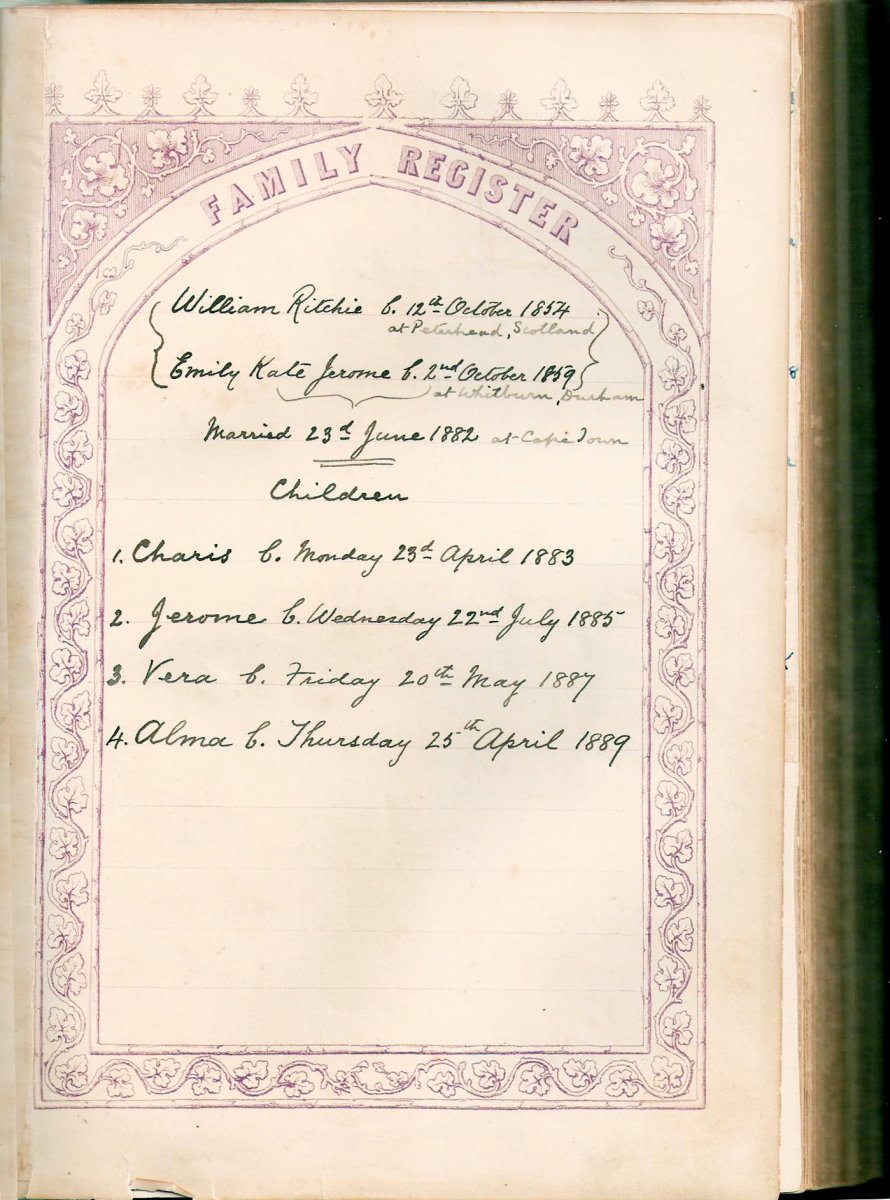 FAMILY REGISTER
William Ritchie b. 12th October 1854
at Peterhead, Scotland
Emily Kate Jerome b. 2nd October 1859
at Whitburn, Durham
Married 23d June 1882 at Cape Town
Children
1. Charis b. Monday 23d April 1883
2. Jerome b. Wednesday 22nd July 1885
3. Vera b. Friday 20th May 1887
4. Alma b. Thursday 25th April 1889